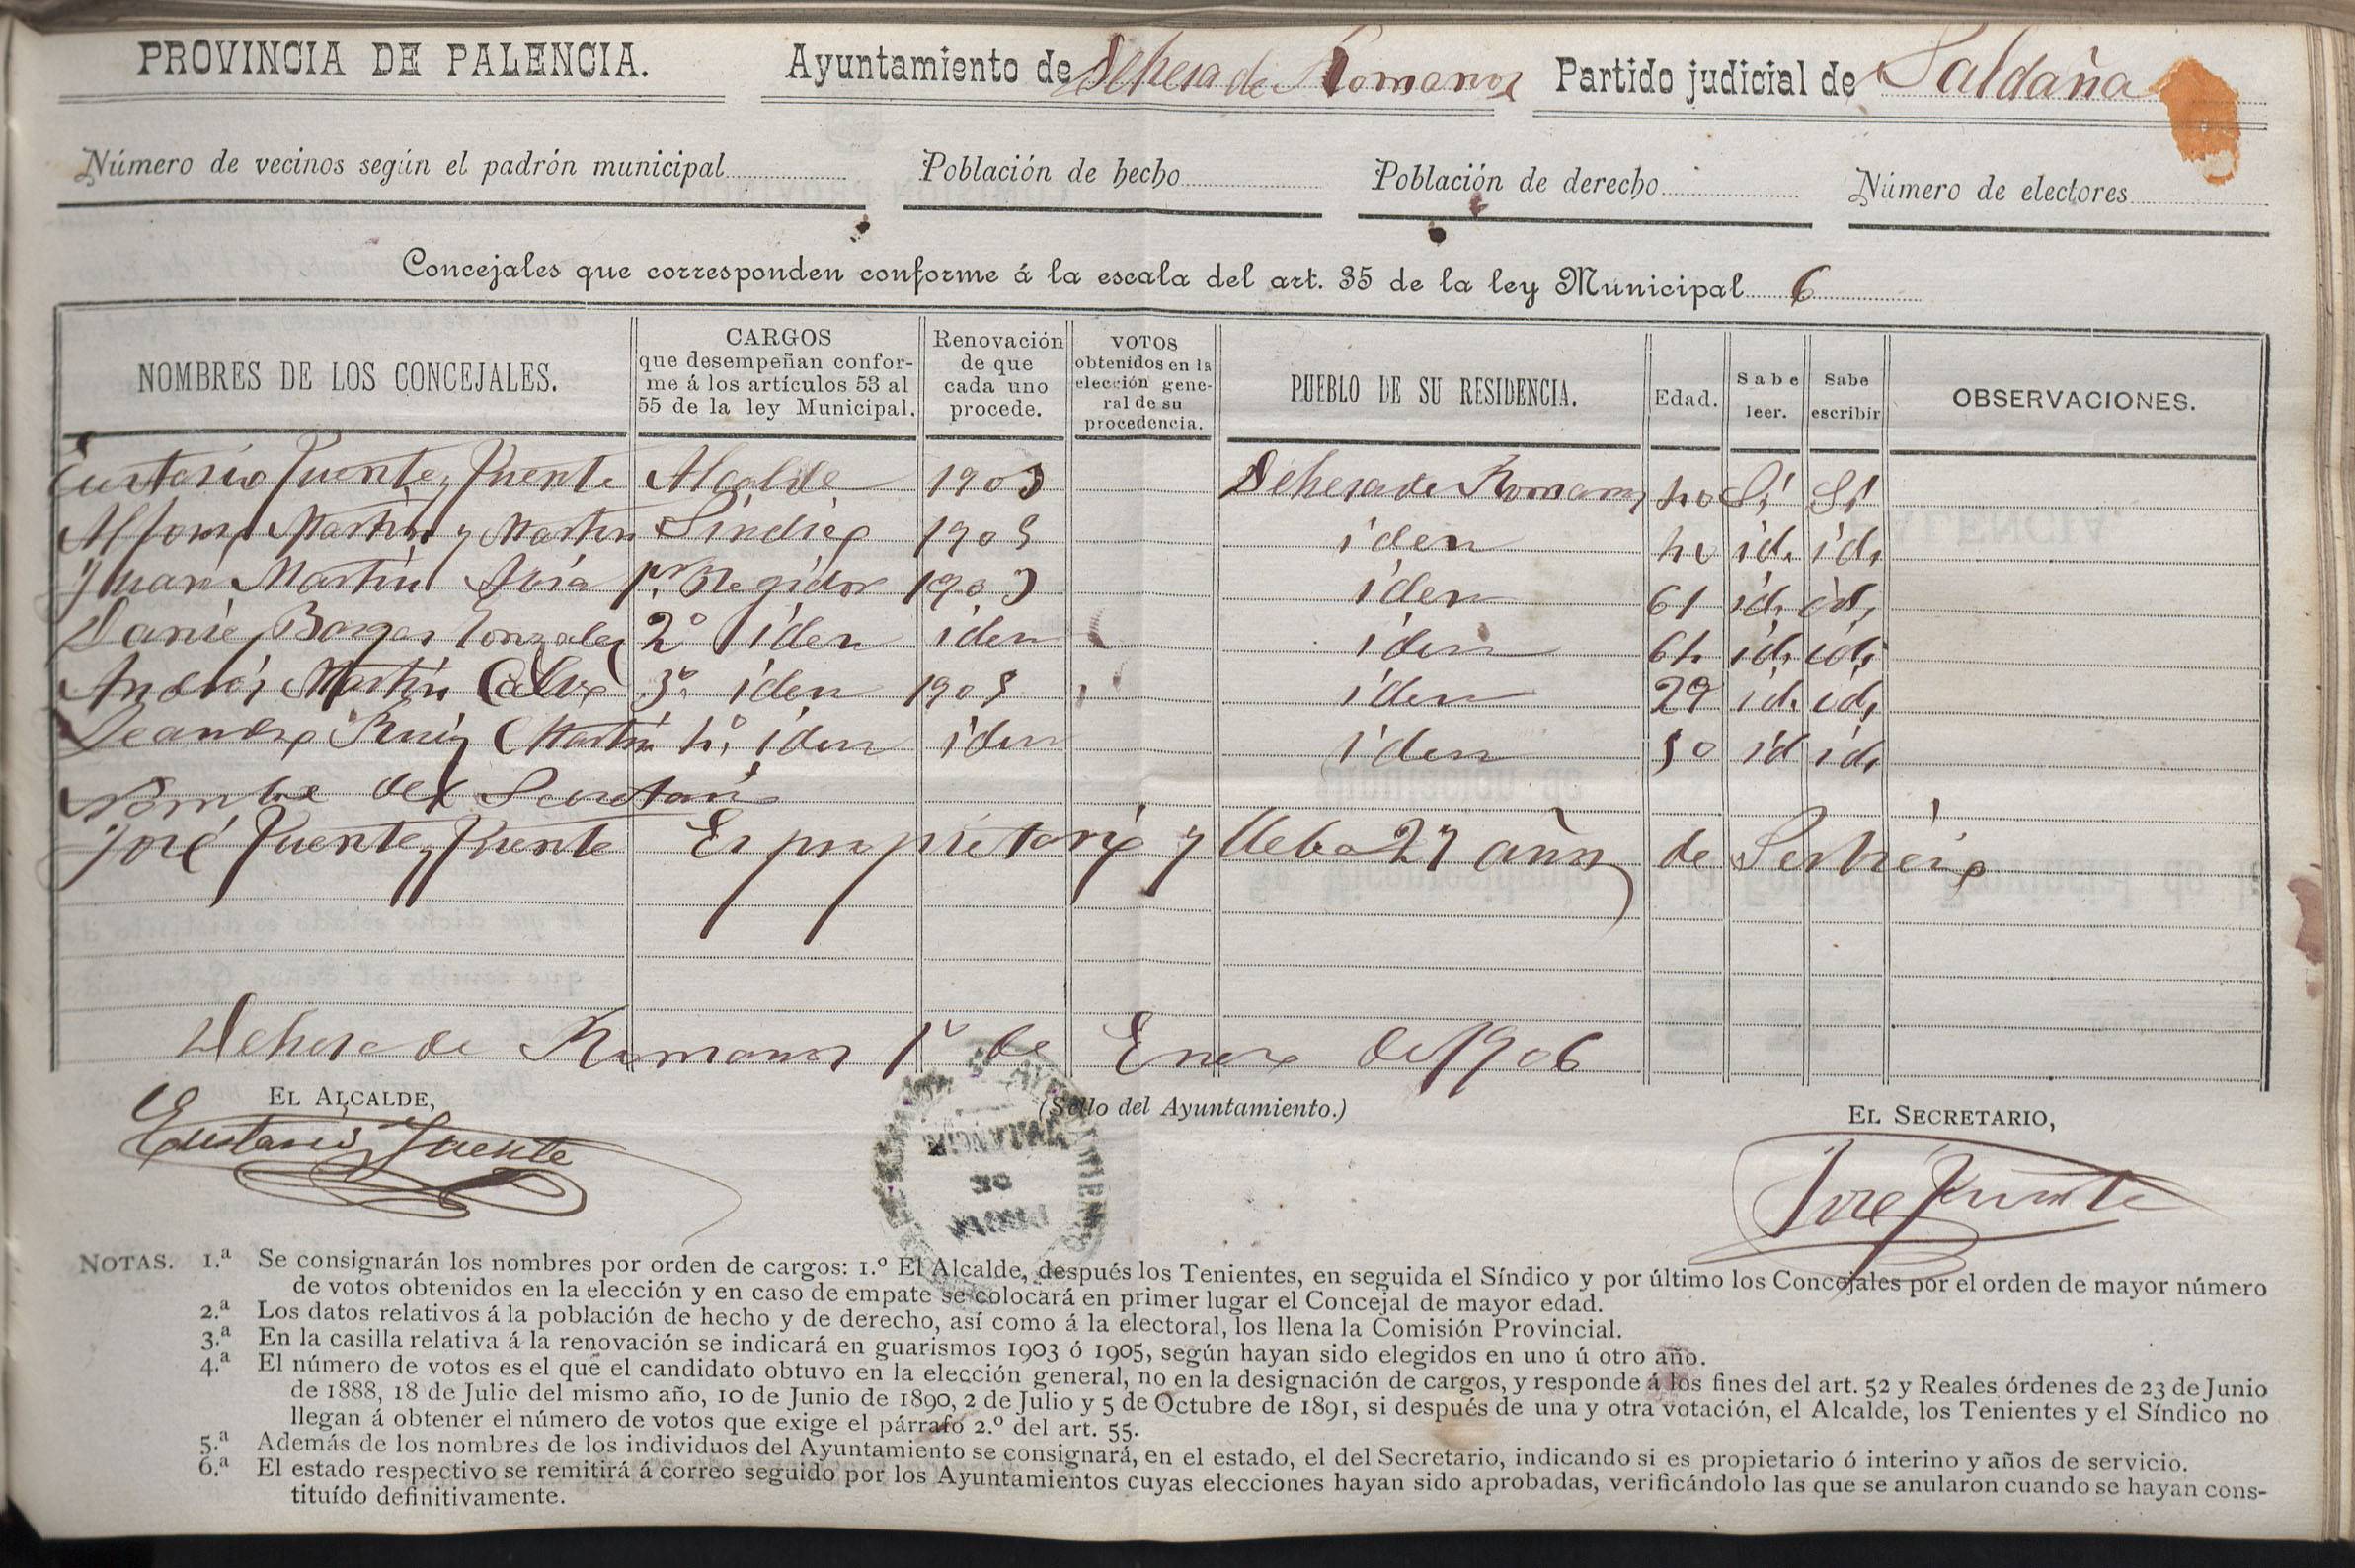 PROVINCIA DE PALENCIA. Ayuntamiento de Dehesa de Romanos Partido judicial de Saldaña
Número de vecinos según el padrón municipal Población de hecho Población de derecho Número de electores
Concejales que corresponden conforme á la escala del art. 35 de la ley Municipal 6
NOMBRES DE LOS CONCEJALES.
CARGOS
que desempeñan confor-
me á los artículos 53 al
55 de la ley Municipal.
Renovación
de que
cada uno
procede.
VOTOS
obtenidos en la
elección gene-
ral de su
procedencia.
PUEBLO DE SU RESIDENCIA.
Edad.
Sabe
leer.
Sabe
escribir
OBSERVACIONES.
Eustasio Fuente y Fuente Alcalde 1903 Dehesa de Romanos 40 Sí Sí
Alfonso Martín y Martín Síndico 1905 iden 40 id. id.
Juan Martín Abia 1r. Regidor 1903 iden 61 id. id.
Daniel Borges Gonzalez 2º iden iden iden 64 id. id.
Andrés Martín Calvo 3º iden 1905 iden 29 id. id.
Leandro Ruiz Martín 4º. iden iden iden 50 id id.
Nombre del Secretario
José Fuente y Fuente Es propietario y lleba 27 años de Serbicio
Dehesa de Romanos 1º de Enero de 1906
EL ALCALDE,
(Sello del Ayuntamiento.)
EL SECRETARIO,
Eustasio de Fuente
José Fuente
NOTAS. 1.ª Se consignarán los nombres por orden de cargos: 1.º El Alcalde, después los Tenientes, en seguida el Síndico y por último los Concejales por el orden de mayor número
de votos obtenidos en la elección y en caso de empate se colocará en primer lugar el Concejal de mayor edad.
2.ª Los datos relativos á la población de hecho y de derecho, así como á la electoral, los llena la Comisión Provincial.
3.ª En la casilla relativa á la renovación se indicará en guarismos 1903 ó 1905, según hayan sido elegidos en uno ú otro año.
4.ª El número de votos es el que el candidato obtuvo en la elección general, no en la designación de cargos, y responde á los fines del art. 52 y Reales órdenes de 23 de Junio
de 1888, 18 de Julio del mismo año, 10 de Junio de 1890, 2 de Julio y 5 de Octubre de 1891, si después de una y otra votación, el Alcalde, los Tenientes y el Síndico no
llegan á obtener el número de votos que exige el párrafo 2.º del art. 55.
5.ª Además de los nombres de los individuos del Ayuntamiento se consignará, en el estado, el del Secretario, indicando si es propietario ó interino y años de servicio.
6.ª El estado respectivo se remitirá á correo seguido por los Ayuntamientos cuyas elecciones hayan sido aprobadas, verificándolo las que se anularon cuando se hayan cons-
tituído definitivamente.